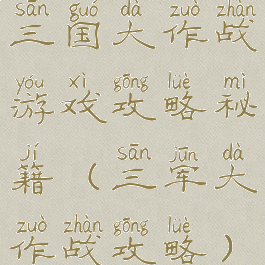 sān guó dà zuò zhàn
三国大作战
yóu xì gōng lüè mì
游戏攻略秘
jí sān jūn dà
籍（三军大
zuò zhàn gōng lüè
作战攻略）